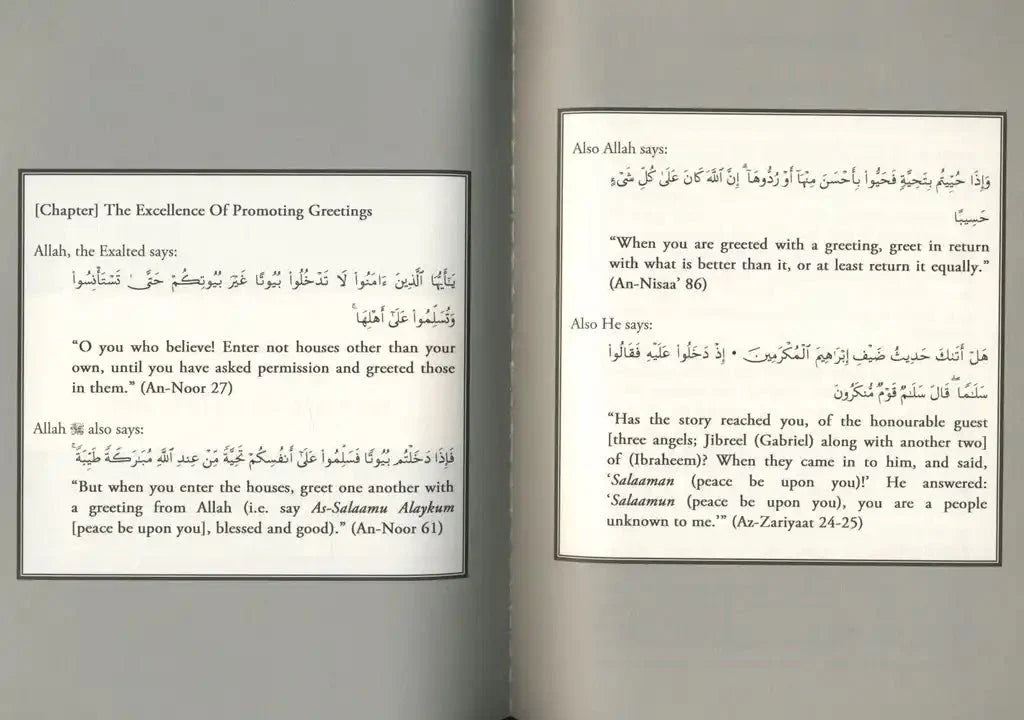 [Chapter] The Excellence Of Promoting Greetings
Allah, the Exalted says:
يَـٰٓأَيُّهَا ٱلَّذِينَ ءَامَنُوا۟ لَا تَدْخُلُوا۟ بُيُوتًا غَيْرَ بُيُوتِكُمْ حَتَّىٰ تَسْتَأْنِسُوا۟
وَتُسَلِّمُوا۟ عَلَىٰٓ أَهْلِهَا ۚ
“O you who believe! Enter not houses other than your
own, until you have asked permission and greeted those
in them.” (An-Noor 27)
Allah ﷻ also says:
فَإِذَا دَخَلْتُم بُيُوتًا فَسَلِّمُوا۟ عَلَىٰٓ أَنفُسِكُمْ تَحِيَّةً مِّنْ عِندِ ٱللَّهِ مُبَـٰرَكَةً طَيِّبَةً ۚ
“But when you enter the houses, greet one another with
a greeting from Allah (i.e. say As-Salaamu Alaykum
[peace be upon you], blessed and good).” (An-Noor 61)
Also Allah says:
وَإِذَا حُيِّيتُم بِتَحِيَّةٍ فَحَيُّوا۟ بِأَحْسَنَ مِنْهَآ أَوْ رُدُّوهَآ ۗ إِنَّ ٱللَّهَ كَانَ عَلَىٰ كُلِّ شَىْءٍ
حَسِيبًا
“When you are greeted with a greeting, greet in return
with what is better than it, or at least return it equally.”
(An-Nisaa’ 86)
Also He says:
هَلْ أَتَىٰكَ حَدِيثُ ضَيْفِ إِبْرَٰهِيمَ ٱلْمُكْرَمِينَ • إِذْ دَخَلُوا۟ عَلَيْهِ فَقَالُوا۟
سَلَـٰمًا ۖ قَالَ سَلَـٰمٌ قَوْمٌ مُّنكَرُونَ
“Has the story reached you, of the honourable guest
[three angels; Jibreel (Gabriel) along with another two]
of (Ibraheem)? When they came in to him, and said,
‘Salaaman (peace be upon you)!’ He answered:
‘Salaamun (peace be upon you), you are a people
unknown to me.’” (Az-Zariyaat 24-25)